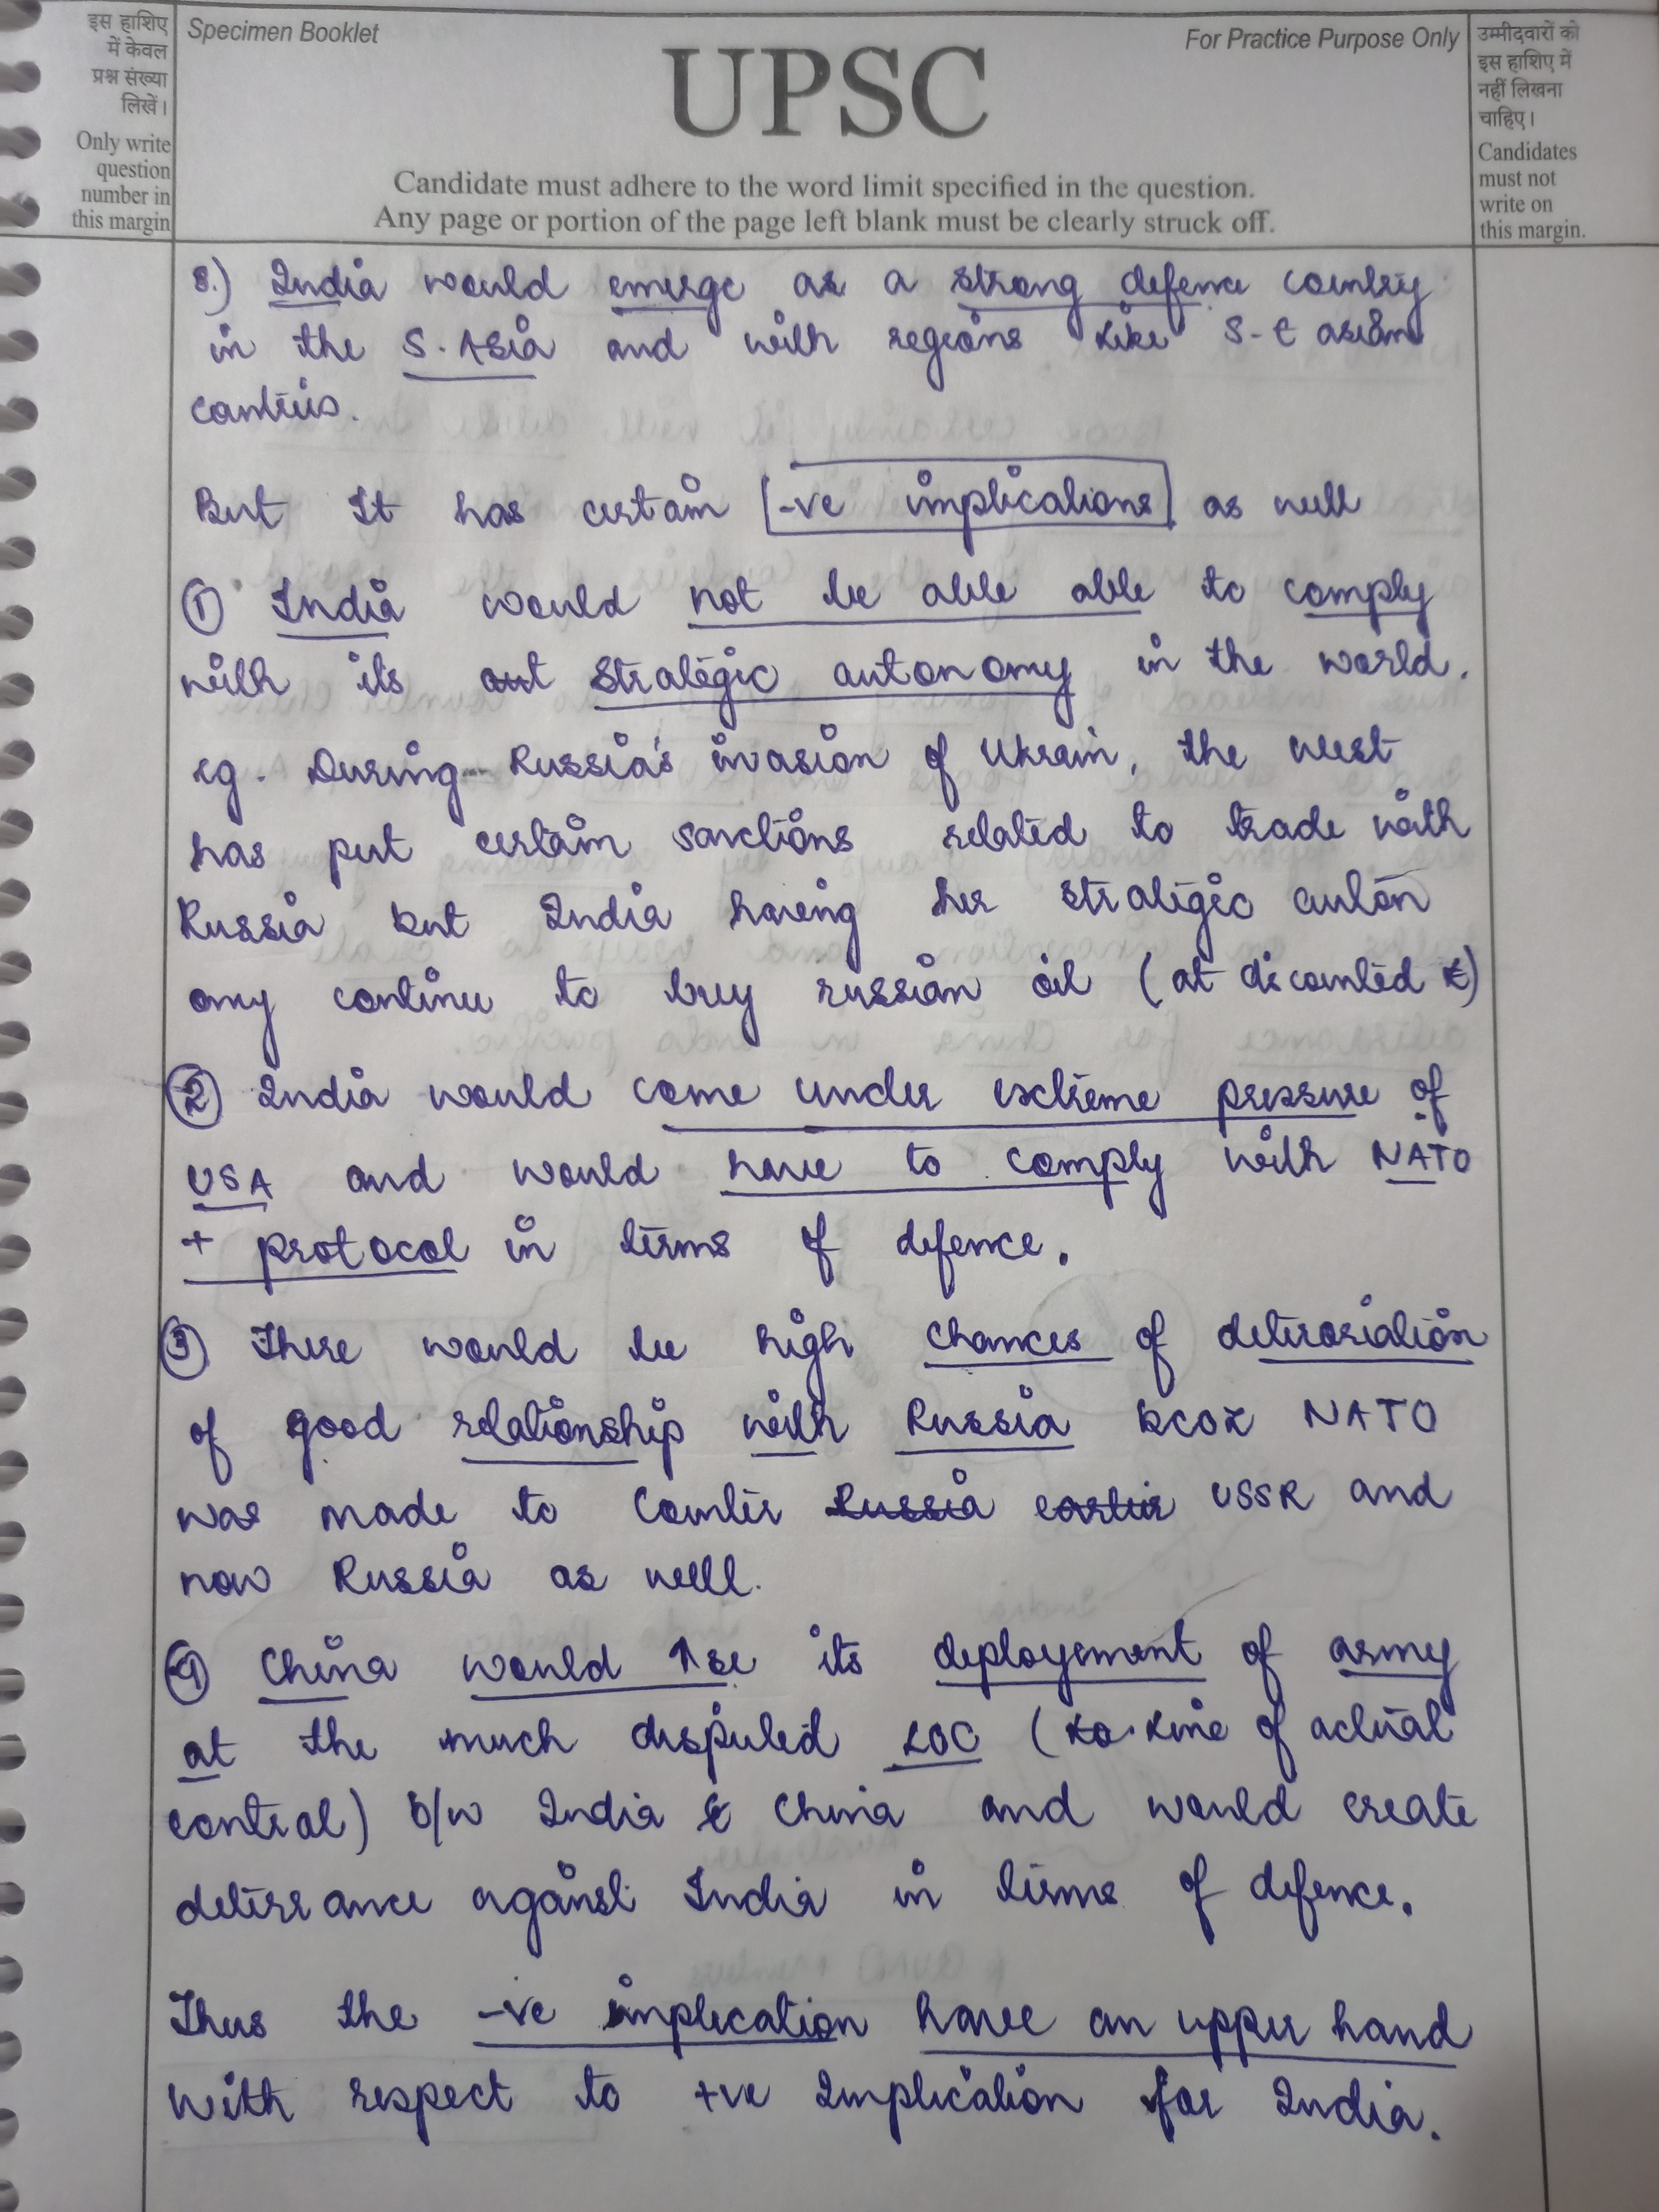 इस हाशिए
में केवल
प्रश्न संख्या
लिखें।
Only write
question
number in
this margin
Specimen Booklet
For Practice Purpose Only
UPSC
Candidate must adhere to the word limit specified in the question.
Any page or portion of the page left blank must be clearly struck off.
उम्मीदवारों को
इस हाशिए में
नहीं लिखना
चाहिए।
Candidates
must not
write on
this margin.
8.) India would emerge as a strong defence country
in the S. Asia and with regions like S-E asian
contries.
But It has certain -ve implications as well
① India would not be able able to comply
with its aut strategic autonomy in the world.
eg. During Russia's invasion of Ukrain, the west
has put certain sanctions related to trade with
Russia but India having her strategic auton
omy continue to buy russian oil (at discounted ₹)
② India would come under extreme pressure of
USA and would have to comply with NATO
+ protocol in terms of defence.
③ There would be high chances of deteroriation
of good relationship with Russia bcoz NATO
was made to counter Russia earlier USSR and
now Russia as well.
④ China would ↑se its deployement of army
at the much disputed LOC ( Line of actual
control) b/w India & China and would create
deterrance against India in terms of defence.
Thus the -ve implication have an upper hand
with respect to +ve Implication for India.